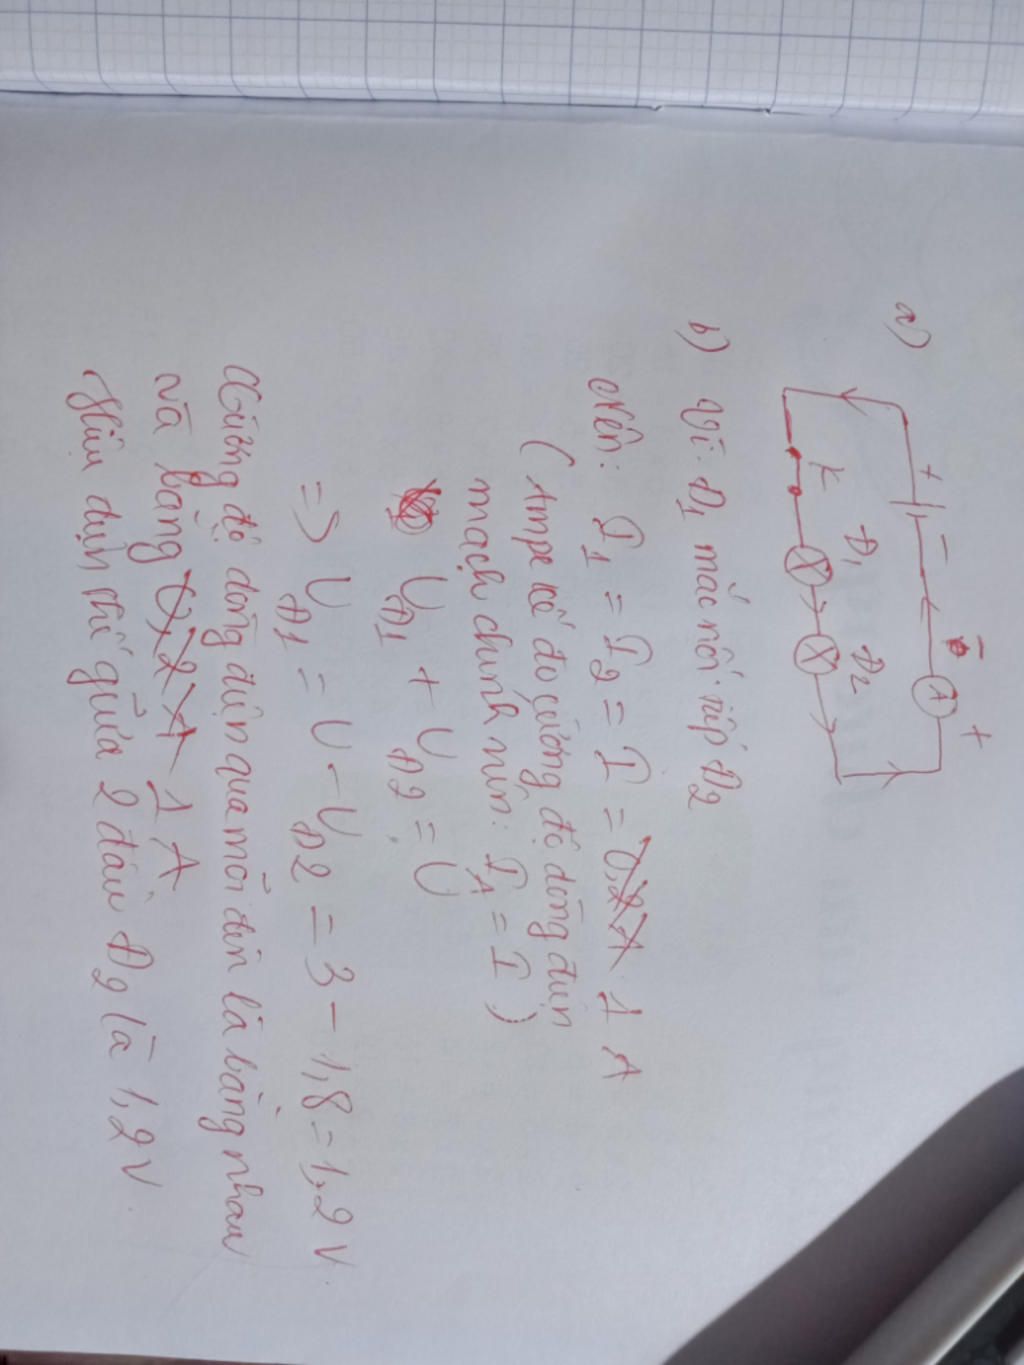 a)
+ - - +
A
K Đ1 Đ2
b) Vì: Đ1 mắc nối tiếp Đ2
Nên: I1 = I2 = I = 0,2A 1 A
(Ampe kế đo cường độ dòng điện
mạch chính nên: IA = I)
UĐ1 + UĐ2 = U
=> UĐ1 = U - UĐ2 = 3 - 1,8 = 1,2 V.
Cường độ dòng điện qua mỗi đèn là bằng nhau
và bằng 0,2 A 1 A
Hiệu điện thế giữa 2 đầu Đ2 là 1,2 V.